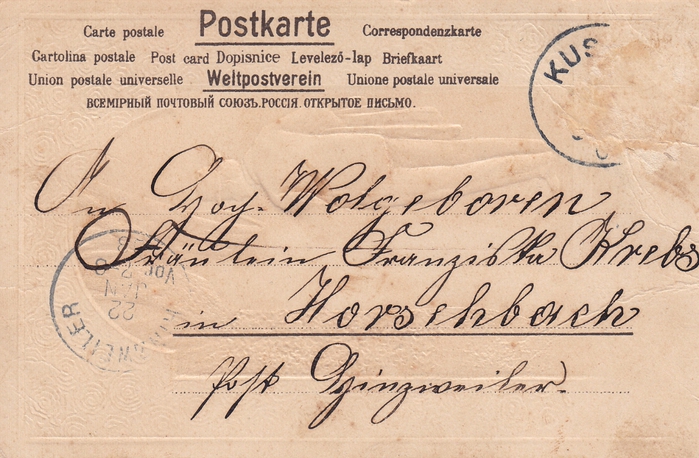 Carte postale Postkarte Correspondenzkarte
Cartolina postale Post card Dopisnice Levelező-lap Briefkaart
Union postale universelle Weltpostverein Unione postale universale
ВСЕМІРНЫЙ ПОЧТОВЫЙ СОЮЗЪ.РОССІЯ.ОТКРЫТОЕ ПИСЬМО.
KUS
An Hoch-Wolgeboren
Fräulein Franziska Krebs
in Horschbach
Post Hinzweiler.
22
JAN
VOR